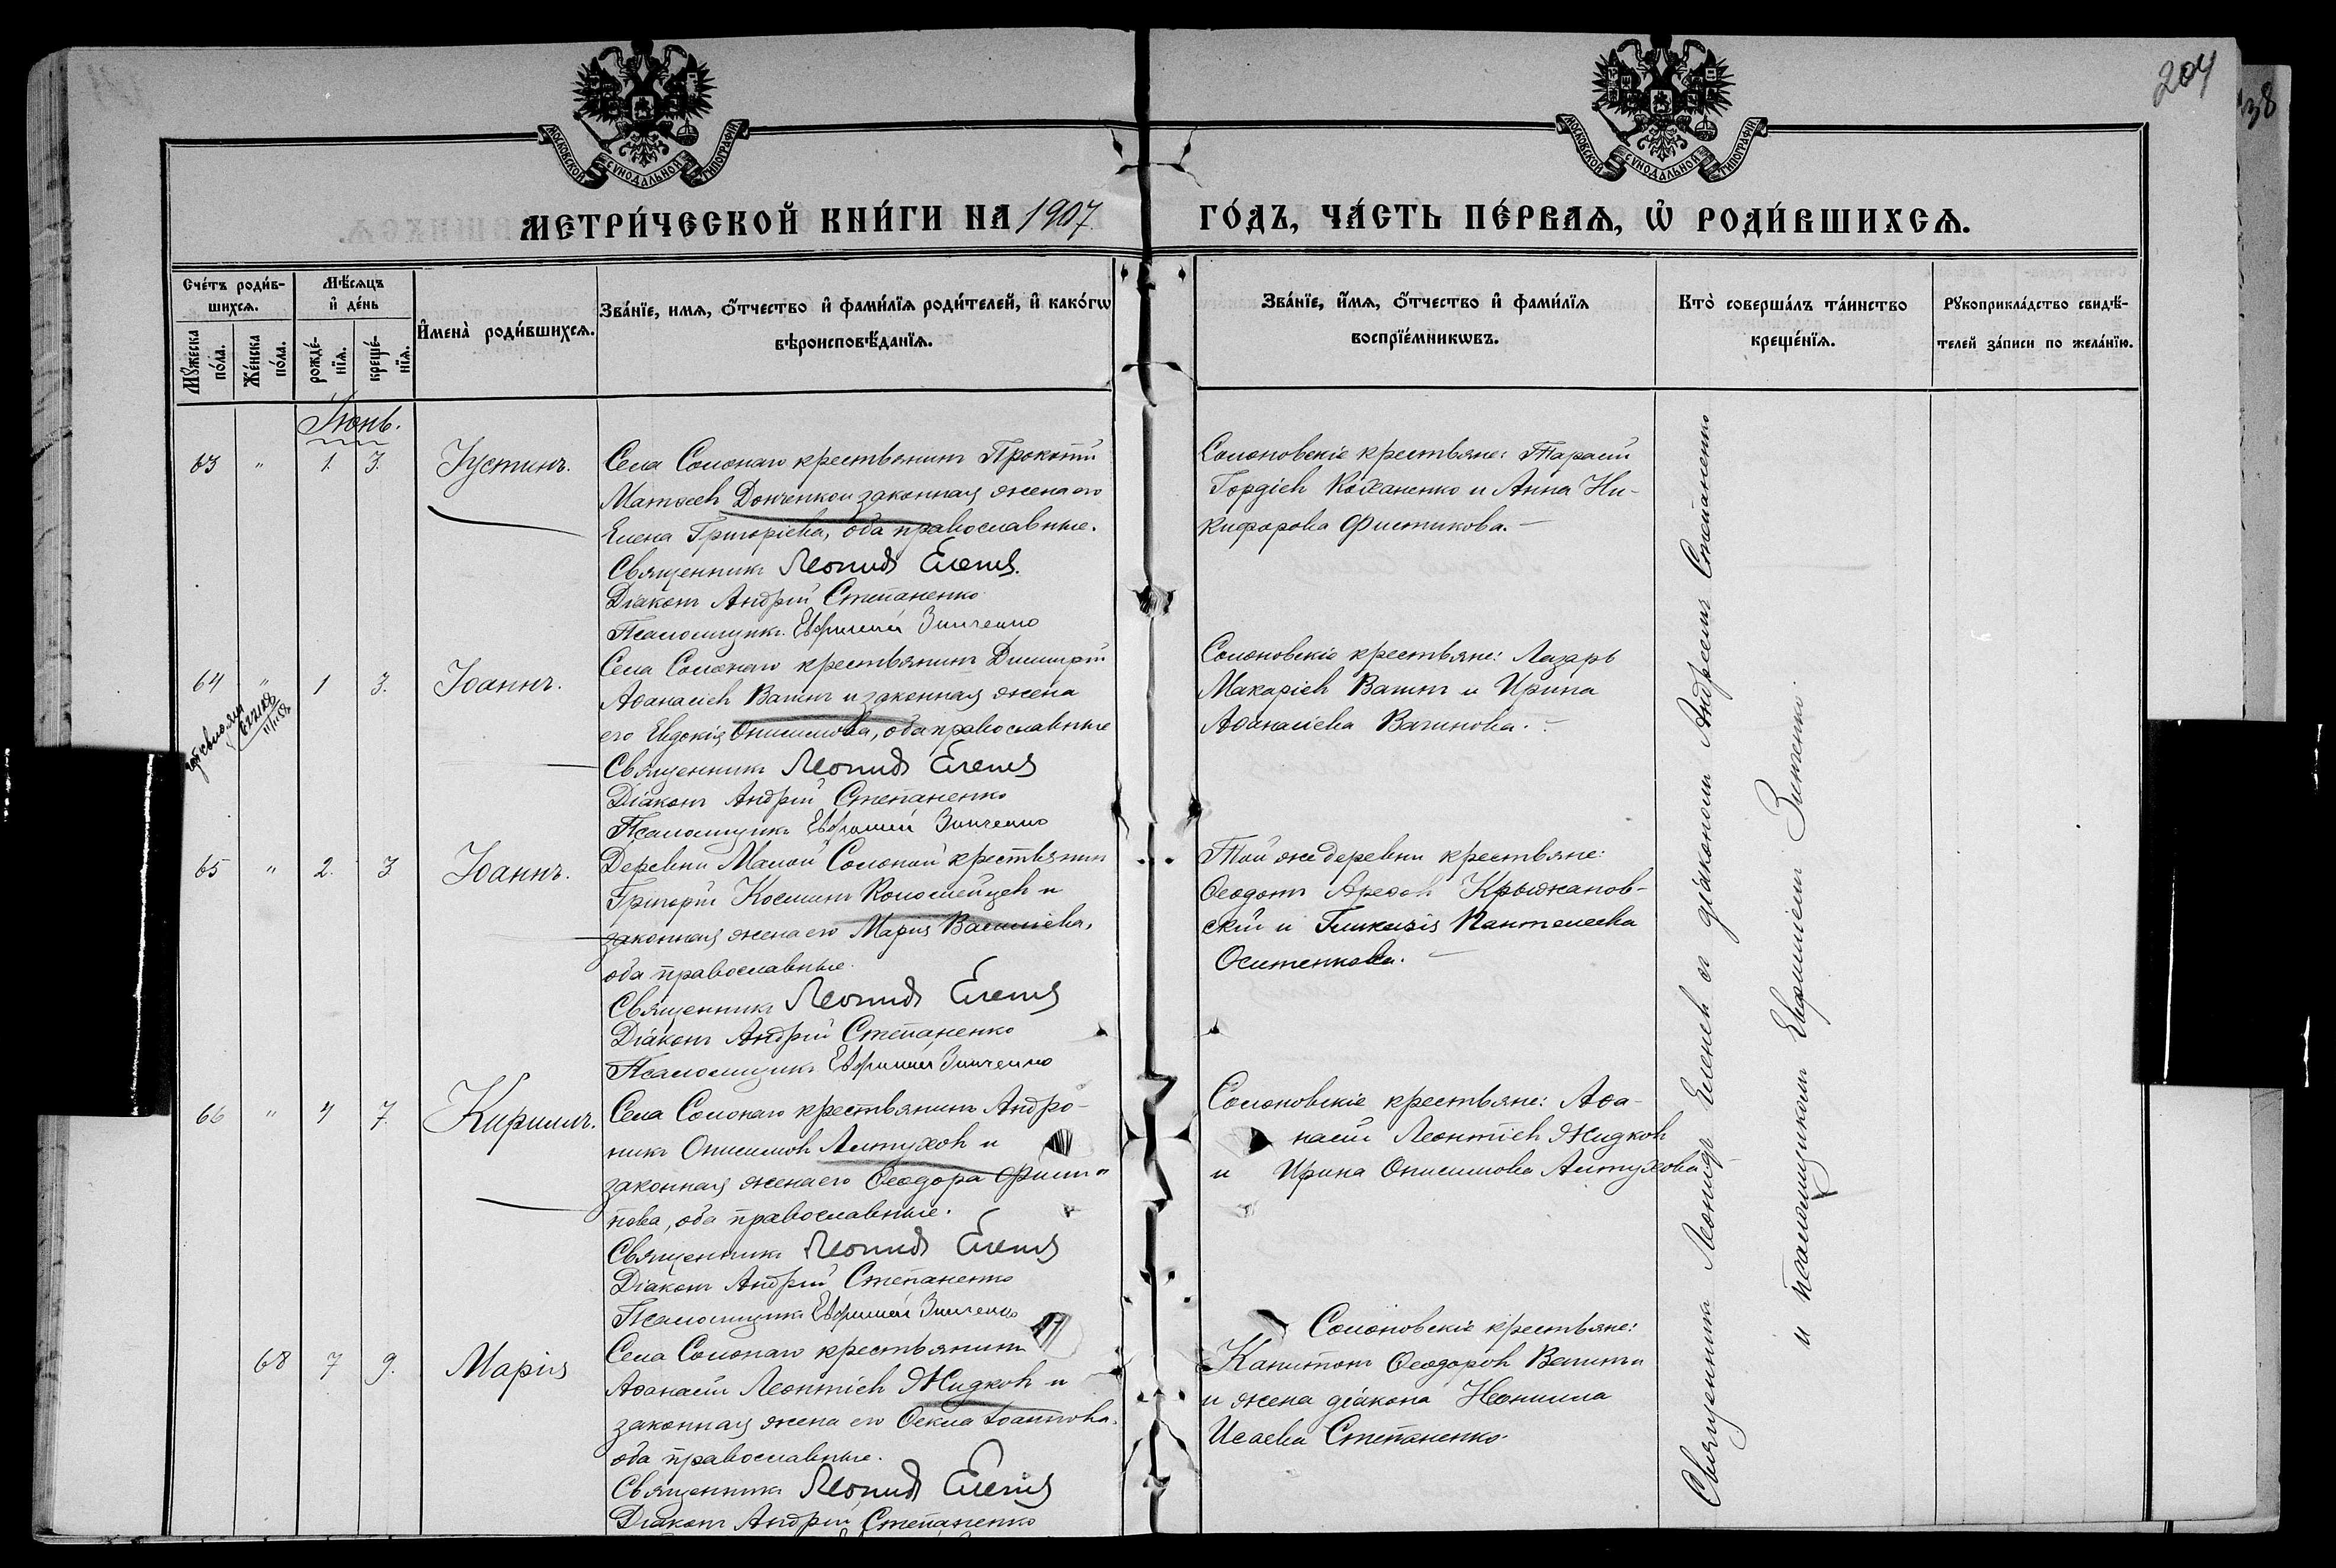 204
38
МОСКОВСКОЙ СѴНОДАЛЬНОЙ ТИПОГРАФІИ
МОСКОВСКОЙ СѴНОДАЛЬНОЙ ТИПОГРАФІИ
МЕТРИ́ЧЕСКОЙ КНИ́ГИ НА 1907
ГО́ДЪ, ЧА́СТЬ ПЕ́РВАѦ, Ѡ҆ РОДИ́ВШИХСѦ.
Сче́тъ роди́в-
шихсѧ.
Мꙋ́жеска по́ла.
Же́нска по́ла.
Мѣ́сѧцъ
и҆ де́нь
рожде́-
нїѧ.
креще́-
нїѧ.
И҆мена̀ роди́вшихсѧ.
Зва́нїе, имѧ, ѻ҆́тчество и҆ фами́лїѧ роди́телей, и҆ како́гѡ
вѣроисповѣ́данїѧ.
Зва́нїе, и҆́мѧ, ѻ҆́тчество и҆ фами́лїѧ
воспрїе́мникѡвъ.
Кто̀ соверша́лъ та́инство
креще́нїѧ.
Рꙋкоприкла́дство свидѣ́-
телей за́писи по жела́нїю.
Іюнь.
63 " 1. 3. Іустинъ.
Села Солонаго крестьянинъ Прокопій
Матѳеев Донченко и законная жена его
Елена Григоріева, оба православные.
Священникъ Леонидъ Еленев
Діаконъ Андрей Степаненко
Псаломщикъ Евфимій Зинченко
Солоновскіе крестьяне: Тарасій
Гордіев Коханенко и Анна Ни-
кифорова Фистикова.
64 " 1 3. Іоаннъ.
Села Солонаго крестьянинъ Димитрій
Аѳанасіев Вагин и законная жена
его Евдокія Онисимова, оба православные
Священникъ Леонидъ Еленев
Діаконъ Андрей Степаненко
Псаломщикъ Евфимій Зинченко
Солоновскіе крестьяне: Лазарь
Макаріев Вагин и Ирина
Аѳанасіева Вагинова.
65 " 2. 3 Іоаннъ.
Деревни Малой Солоной крестьянин
Григорій Космин Коломейцев и
законная жена его Марія Василіева,
оба православные.
Священникъ Леонидъ Еленев
Діаконъ Андрей Степаненко
Псаломщикъ Евфимій Зинченко
Той же деревни крестьяне:
Ѳеодотъ Крыжанов-
скій и Гликерія Пантелеева
Осипенкова.
66 " 4 7. Кириллъ.
Села Солонаго крестьянинъ Андро-
никъ Онисимов Алтухов и
законная жена его Ѳеодора Филип-
пова, оба православные.
Священникъ Леонидъ Еленев
Діаконъ Андрей Степаненко
Псаломщикъ Евфимій Зинченко
Солоновскіе крестьяне: Аѳа-
насій Леонтіев Жидков
и Ирина Онисимова Алтухова
68 7 9. Марія
Села Солонаго крестьянинъ
Аѳанасій Леонтіев Жидков и
законная жена его Ѳекла Іоаннова.
оба православные.
Священникъ Леонидъ Еленев
Діаконъ Андрей Степаненко
Солоновскіе крестьяне:
Капитонъ Ѳеодоров Вагин
и жена діакона Неонила
Исаева Степаненко.
Священникъ Леонидъ Еленев с діакономъ Андреемъ Степаненко
и псаломщикомъ Евфиміемъ Зинченко.